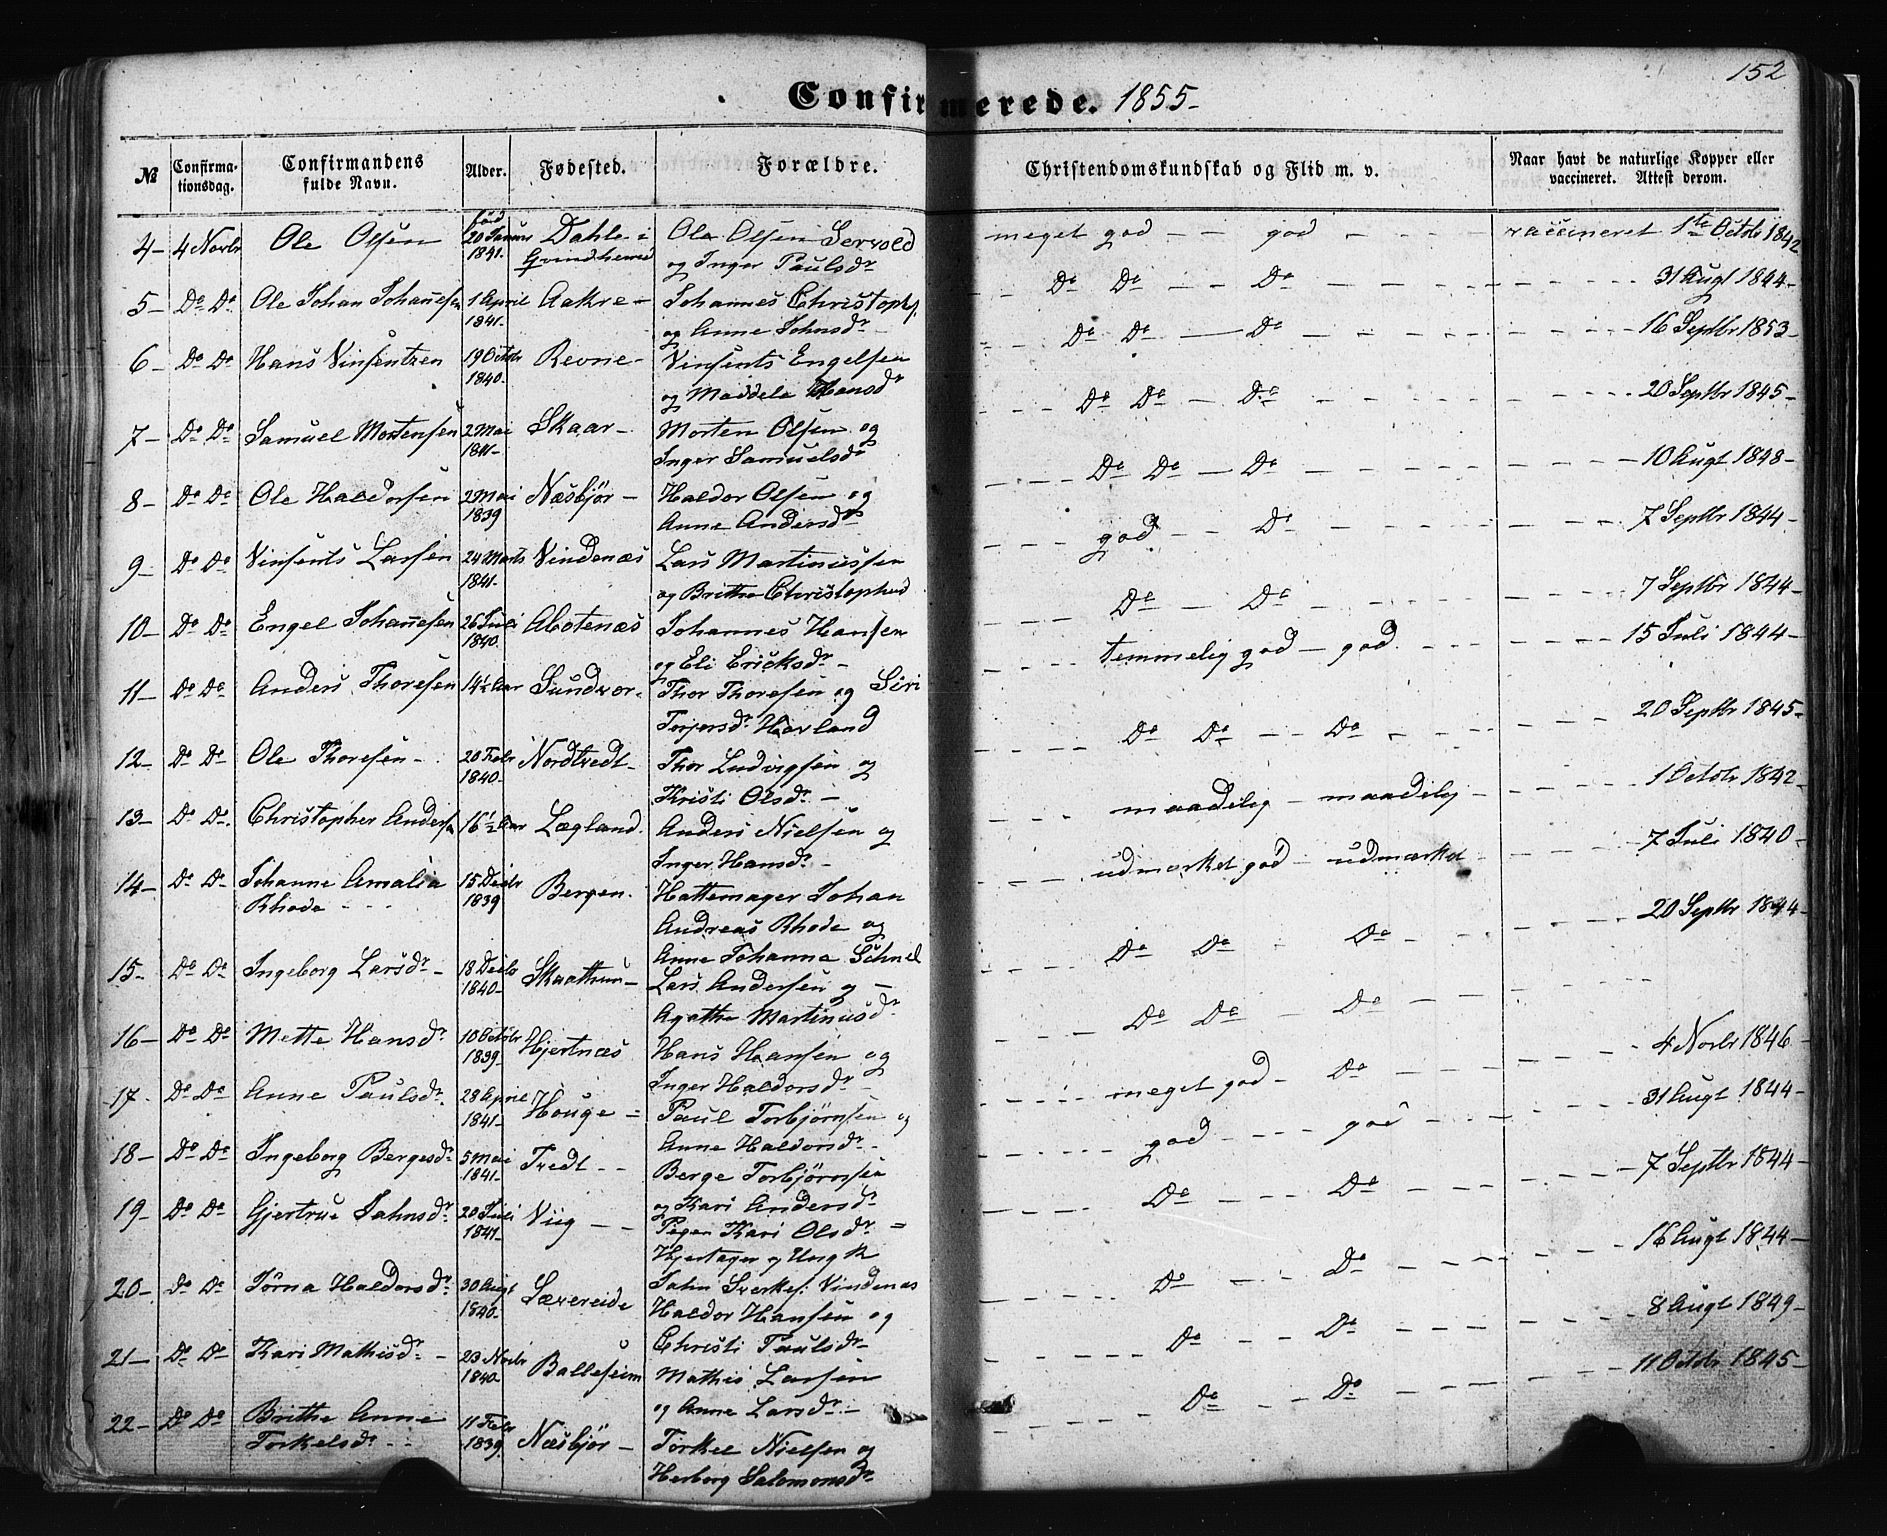 152
Confirmerede. 1855-
№ Confirma-tionsdag. Confirmandens fulde Navn. Alder. Fødested. Forældre. Christendomskundskab og Flid m. v. Naar havt de naturlige Kopper eller vaccineret. Attest derom.
4- 4 Novbr Ole Olsen fød 20 Januar 1841. Dahle i Qvindherred Ole Olsen og Inger Paulsdr meget god - - god - - - - vaccineret 1te Octobr 1842
5- Do Do Ole Johan Johannesen 1 April 1841- Aakre- Johannes Christophs. og Anne Johnsdr- Do Do - Do 31 Augt 1844-
6- Do Do Hans Vinsentzen 19 Octobr 1840- Revne- Vinsents Engelsen og Maddela Hansdr Do Do - Do 16 Septbr 1853-
7- Do Do Samuel Mortensen 2 Mai 1841- Skaar- Morten Olsen og Inger Samuelsdr Do Do - Do 20 Septbr 1845-
8- Do Do Ole Haldorsen 2 Mai 1839 Næsbjør- Haldor Olsen og Anne Andersdr Do Do - Do 10 Augt 1848-
9- Do Do Vinsents Larsen 24 Marts 1841- Vindenæs Lars Martinussen og Brithe Christophersd god - - Do 7 Septbr 1844-
10- Do Do Engel Johannesen 26 Juli 1840 Alotenæs Johannes Hansen og Eli Ericksdr- Do - Do 7 Septbr 1844-
11- Do Do Anders Thoresen 14½ Aar Sundvor- Thor Thoresen og Siri Torgersdr Havland temmelig god - god 15 Juli 1844-
12- Do Do Ole Thoresen- 20 Febr 1840- Nordtvedt- Thor Ludvigsen og Kristi Olsdr- Do Do - Do 20 Septbr 1845-
13- Do Do. Christopher Andersen 16½ Aar Lægland. Anders Nielsen og Inger Hansdr- maadelig - maadelig - 1 Octobr 1842-
14- Do Do Johanne Amalia Rhode - - - 15 Decbr 1839 Bergen. Hattemager Johan Andreas Rhode og Anne Johanna Schnel udmærket god - udmærket 7 Juli 1840-
15- Do Do Ingeborg Larsdr- 18 Decbr 1840- Skaathun- Lars Andersen og - Agathe Martinusdr Do Do - Do 20 Septbr 1844-
16- Do Do Mette Hansdr 10 Octobr 1839 Hjertnæs Hans Hansen og Inger Haldorsdr- Do Do - Do
17- Do Do Anne Paulsdr. 28 April 1841- Houge = Paul Torbjørnsen og Anne Haldorsdr- meget god - Do 4 Novbr 1846-
18- Do Do Ingeborg Bergesdr 5 Mai 1841- Tvedt - - Berge Torbjørnsen og Kari Andersdr god - - - god 31 Augt 1844-
19- Do Do Gjertrue Jahnsdr 20 Juli 1841- Viig - - Pigen Kari Olsdr = Hjertager og Ungk Jahn Sverkes. Vindenæs Do - - Do 7 Septbr 1844-
20- Do Do Jørna Haldorsdr 30 Augt 1840- Sævereide Haldor Hansen og Christi Paulsdr- Do - - Do 16 Augt 1844-
21- Do Do Kari Mathisdr- 23 Novbr 1840- Balleseim Mathis Larsen og Anne Larsdr- Do - - Do 8 Augt 1849-
22- Do Do Brithe Anne Torkelsdr - - 11 Febr 1839 Næsbjør- Torkel Nielsen og Herborg Salomonsdr Do - - Do 11 Octobr 1845-